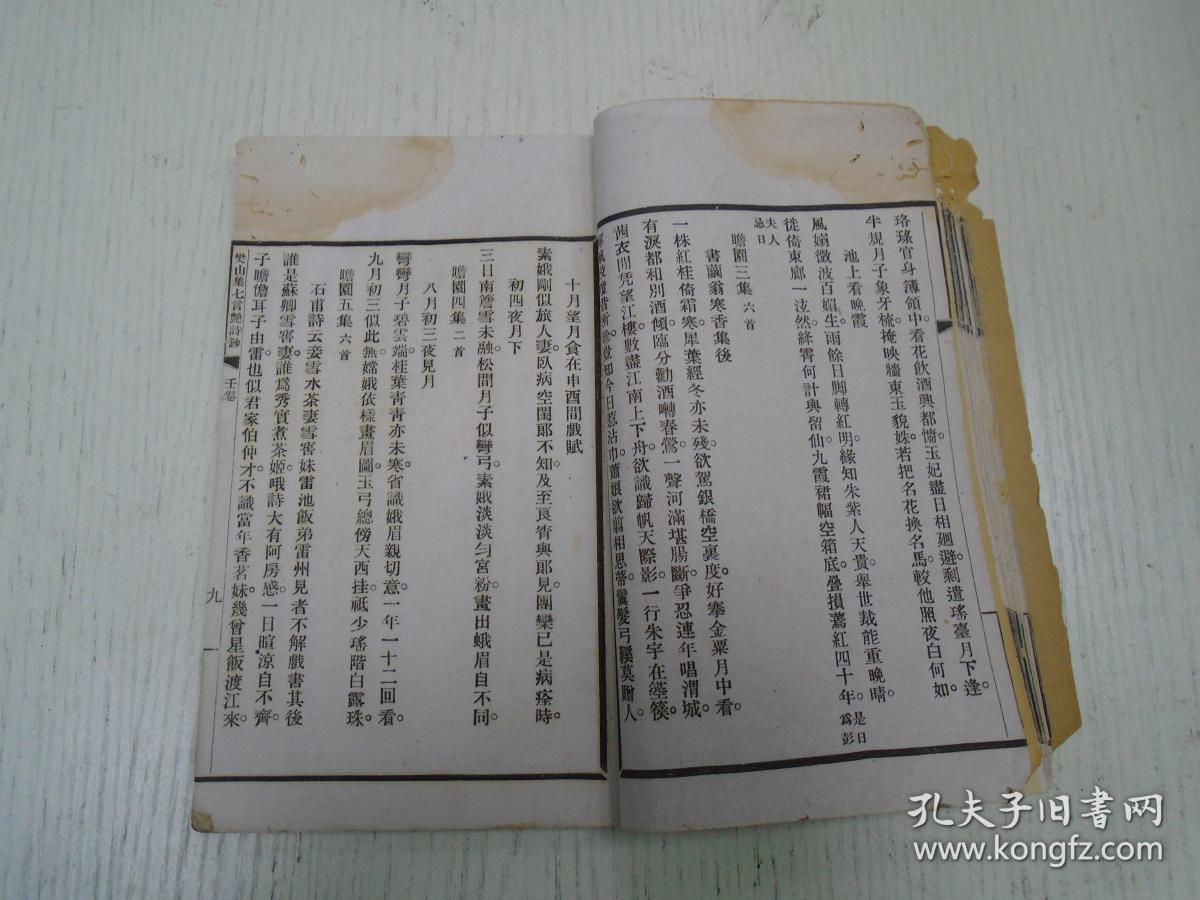 珞瑹官身簿領中看花飲酒興都慵玉妃盡日相廻避剩遣瑤臺月下逢。
半規月子象牙梳掩映牆東玉貌姝若把名花換名馬較他照夜白何如。
池上看晚霞
風嫋微波百媚生雨餘日脚轉紅明緣知朱紫人天貴舉世裁能重晚晴。
徙倚東廊一泫然絳霄何計與留仙九霞裙幅空箱底疊損蔫紅四十年。是日為彭
夫人忌日
瞻園三集 六首
書藺翁寒香集後
一株紅桂倚霜寒犀葉經冬亦未殘欲駕銀橋空裏度好搴金粟月中看。
有淚都和別酒傾臨分勸酒囀春鶯一聲河滿堪腸斷爭忍連年唱渭城。
茜衣閒凭望江樓數盡江南上下舟欲識歸帆天際影一行朱字在箜篌。
知今日惹沾巾蕭娘欲翦相思帶鬢髮弓鞵莫贈人。
十月望月食在申酉間戲賦
素娥剛似旅人妻臥病空閨郞不知及至良宵與郞見團欒已是病痊時。
初四夜月下
三日南簷雪未融松間月子似彎弓素娥淡淡勻宮粉畫出蛾眉自不同。
瞻園四集 二首
八月初三夜見月
彎彎月子碧雲端桂葉青青亦未寒省識娥眉親切意一年一十二回看。
九月初三似此無嫦娥依樣畫眉圖玉弓總傍天西挂祗少瑤階白露珠。
瞻園五集 六首
石甫詩云妾雪水茶妻雪窖妹雷池飯弟雷州見者不解戲書其後
誰是蘇卿雪窖妻誰為秀實煮茶姬哦詩大有阿房感一日暄涼自不齊。
子瞻儋耳子由雷也似君家伯仲才不識當年香茗妹幾曾星飯渡江來。
樊山集七言艷詩鈔 壬卷 九
孔夫子旧书网
www.kongfz.com